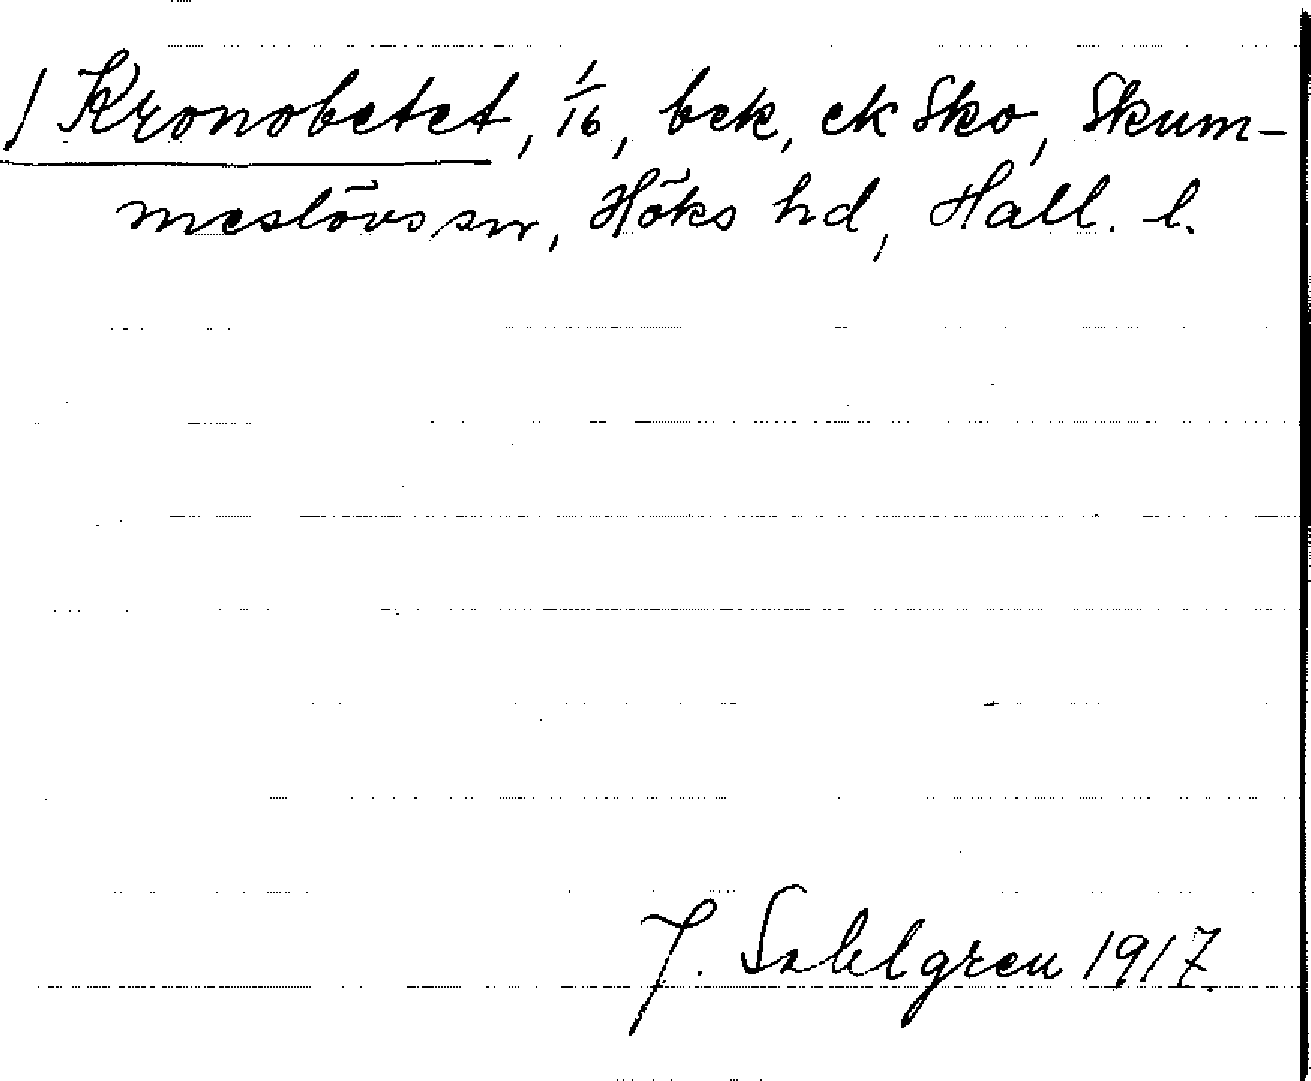 / Kronobetet, 1/16, bek, ek Sko, Skum-
meslövs sn, Höks hd, Hall. l.
J. Sahlgren 1917.